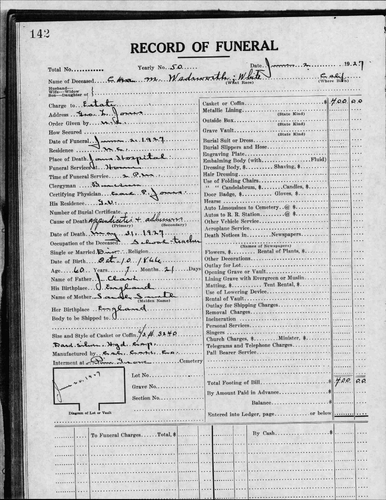 142
RECORD OF FUNERAL
Total No. Yearly No. 50 Date June 2, 1927
Name of Deceased M. Wadsworth White Calif
(What Race) (Where Born)
Husband—
Wife—Widow
Son—Daughter of
Charge to Estate
Address Geo. L. Jones
Order Given by
How Secured
Date of Funeral June 2, 1927
Residence
Place of Death Hospital
Funeral Services at Home
Time of Funeral Service 2 P.M.
Clergyman
Certifying Physician Carl P. Jones
His Residence G.V.
Number of Burial Certificate
Cause of Death
(Primary) (Secondary)
Date of Death May 31, 1927
Occupation of the Deceased School teacher
Single or Married Div. Religion
Date of Birth Oct. 10, 1866
Age 60 Years 7 Months 21 Days
Name of Father J. Clark
His Birthplace England
Name of Mother Sarah
(Maiden Name)
Her Birthplace England
Body to be Shipped to
Size and Style of Casket or Coffin
Manufactured by Cal. Co.
Interment at Pine Grove Cemetery
June 2, 1927
Lot No.
Grave No.
Section No.
Diagram of Lot or Vault
Casket or Coffin $ 400 00
Metallic Lining
(State Kind)
Outside Box
(State Kind)
Grave Vault
(State Kind)
Burial Suit or Dress
Burial Slippers and Hose
Engraving Plate
Embalming Body (with Fluid)
Dressing Body, $ Shaving, $
Hair Dressing
Use of Folding Chairs
" " Candelabrum, $ Candles, $
Door Badge, $ Gloves, $
Hearse
Auto Limousines to Cemetery @ $
Autos to R. R. Station @ $
Other Vehicle Service
Aeroplane Service
Death Notices in Newspapers
(Names of Newspapers)
Flowers, $ Rental of Plants, $
Other Decorations
Outlay for Lot
Opening Grave or Vault
Lining Grave with Evergreen or Muslin
Matting, $ Tent Rental, $
Use of Lowering Device
Rental of Vault
Outlay for Shipping Charges
Removal Charges
Incineration
Personal Services
Singers
Church Charges, $ Minister, $
Telegrams and Telephone Charges
Pall Bearer Service
Total Footing of Bill $ 400 00
By Amount Paid in Advance
Balance
Entered into Ledger, page or below $
To Funeral Charges Total, $
By Cash $